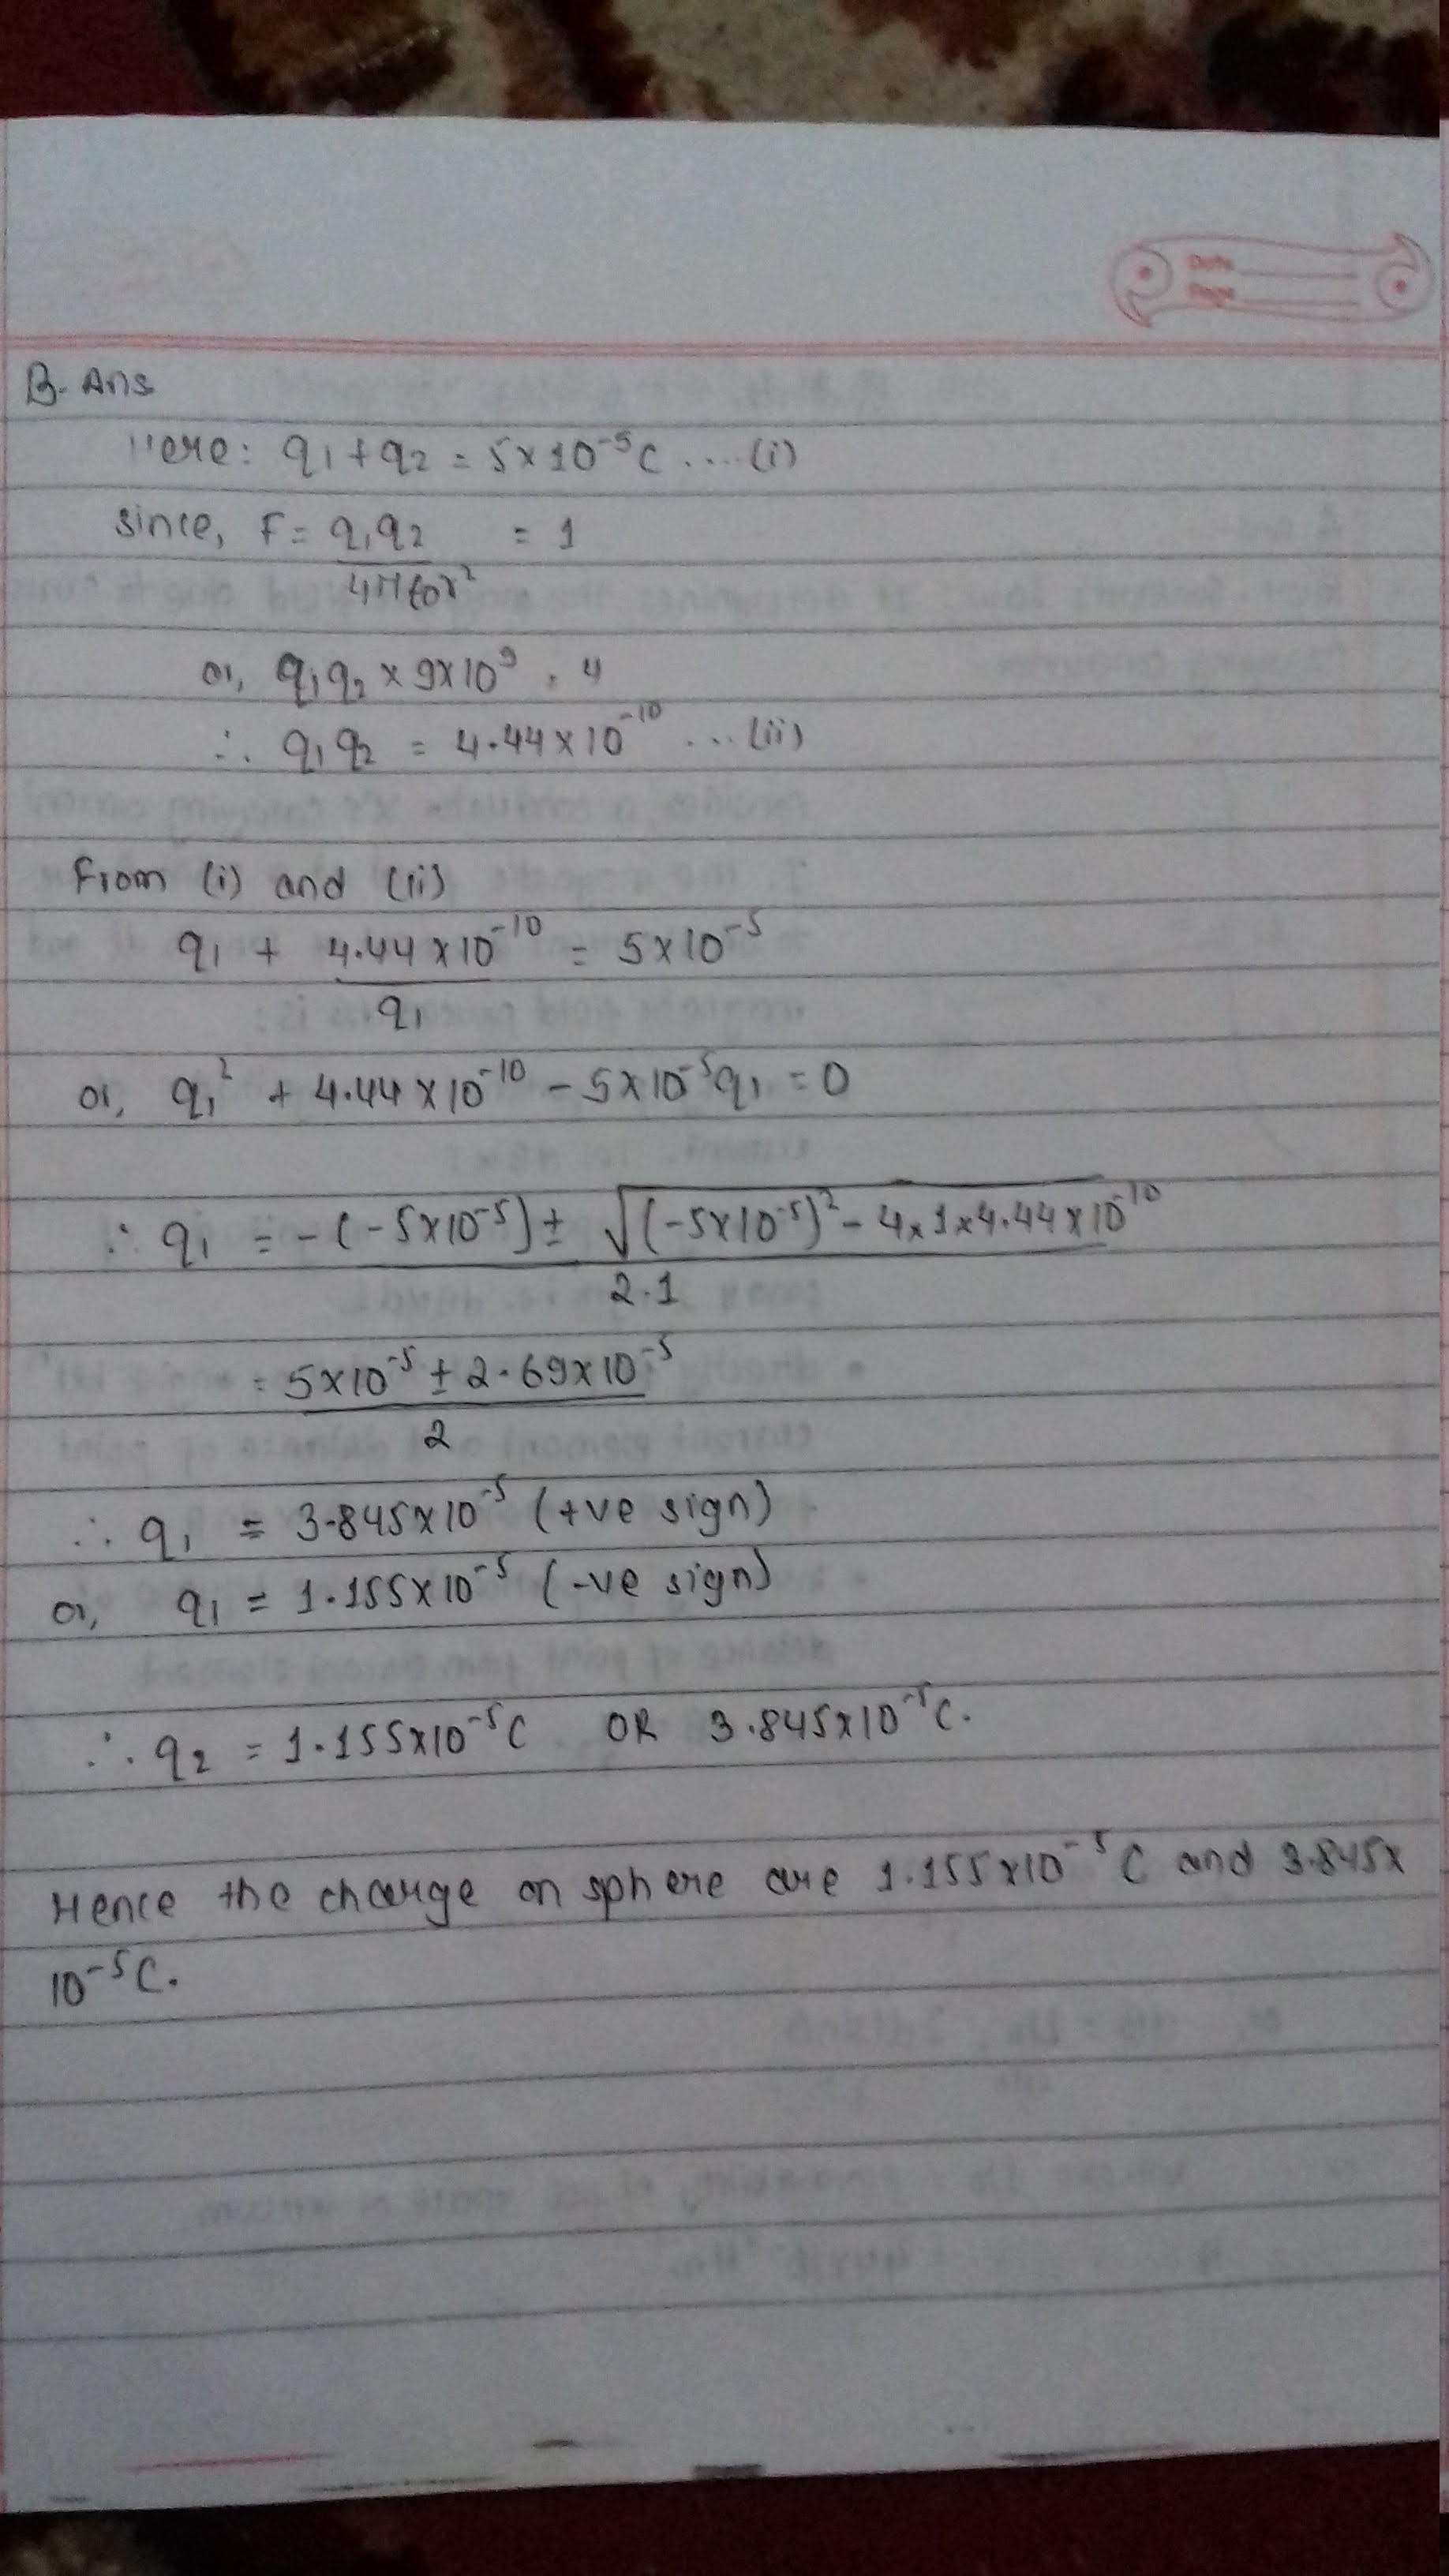 Date
Page
B. Ans
Here: q₁+q₂ = 5×10⁻⁵C ....(i)
since, F = q₁q₂/4πϵ₀r² = 1
or, q₁q₂ × 9×10⁹ = 4
∴ q₁q₂ = 4.44×10⁻¹⁰ ...(ii)
From (i) and (ii)
q₁ + 4.44×10⁻¹⁰/q₁ = 5×10⁻⁵
or, q₁² + 4.44×10⁻¹⁰ - 5×10⁻⁵q₁ = 0
∴ q₁ = -(-5×10⁻⁵) ± √(-5×10⁻⁵)² - 4×1×4.44×10⁻¹⁰ / 2.1
= 5×10⁻⁵ ± 2.69×10⁻⁵ / 2
∴ q₁ = 3.845×10⁻⁵ (+ve sign)
or, q₁ = 1.155×10⁻⁵ (-ve sign)
∴ q₂ = 1.155×10⁻⁵C OR 3.845×10⁻⁵C.
Hence the charge on sphere are 1.155×10⁻⁵C and 3.845×
10⁻⁵C.